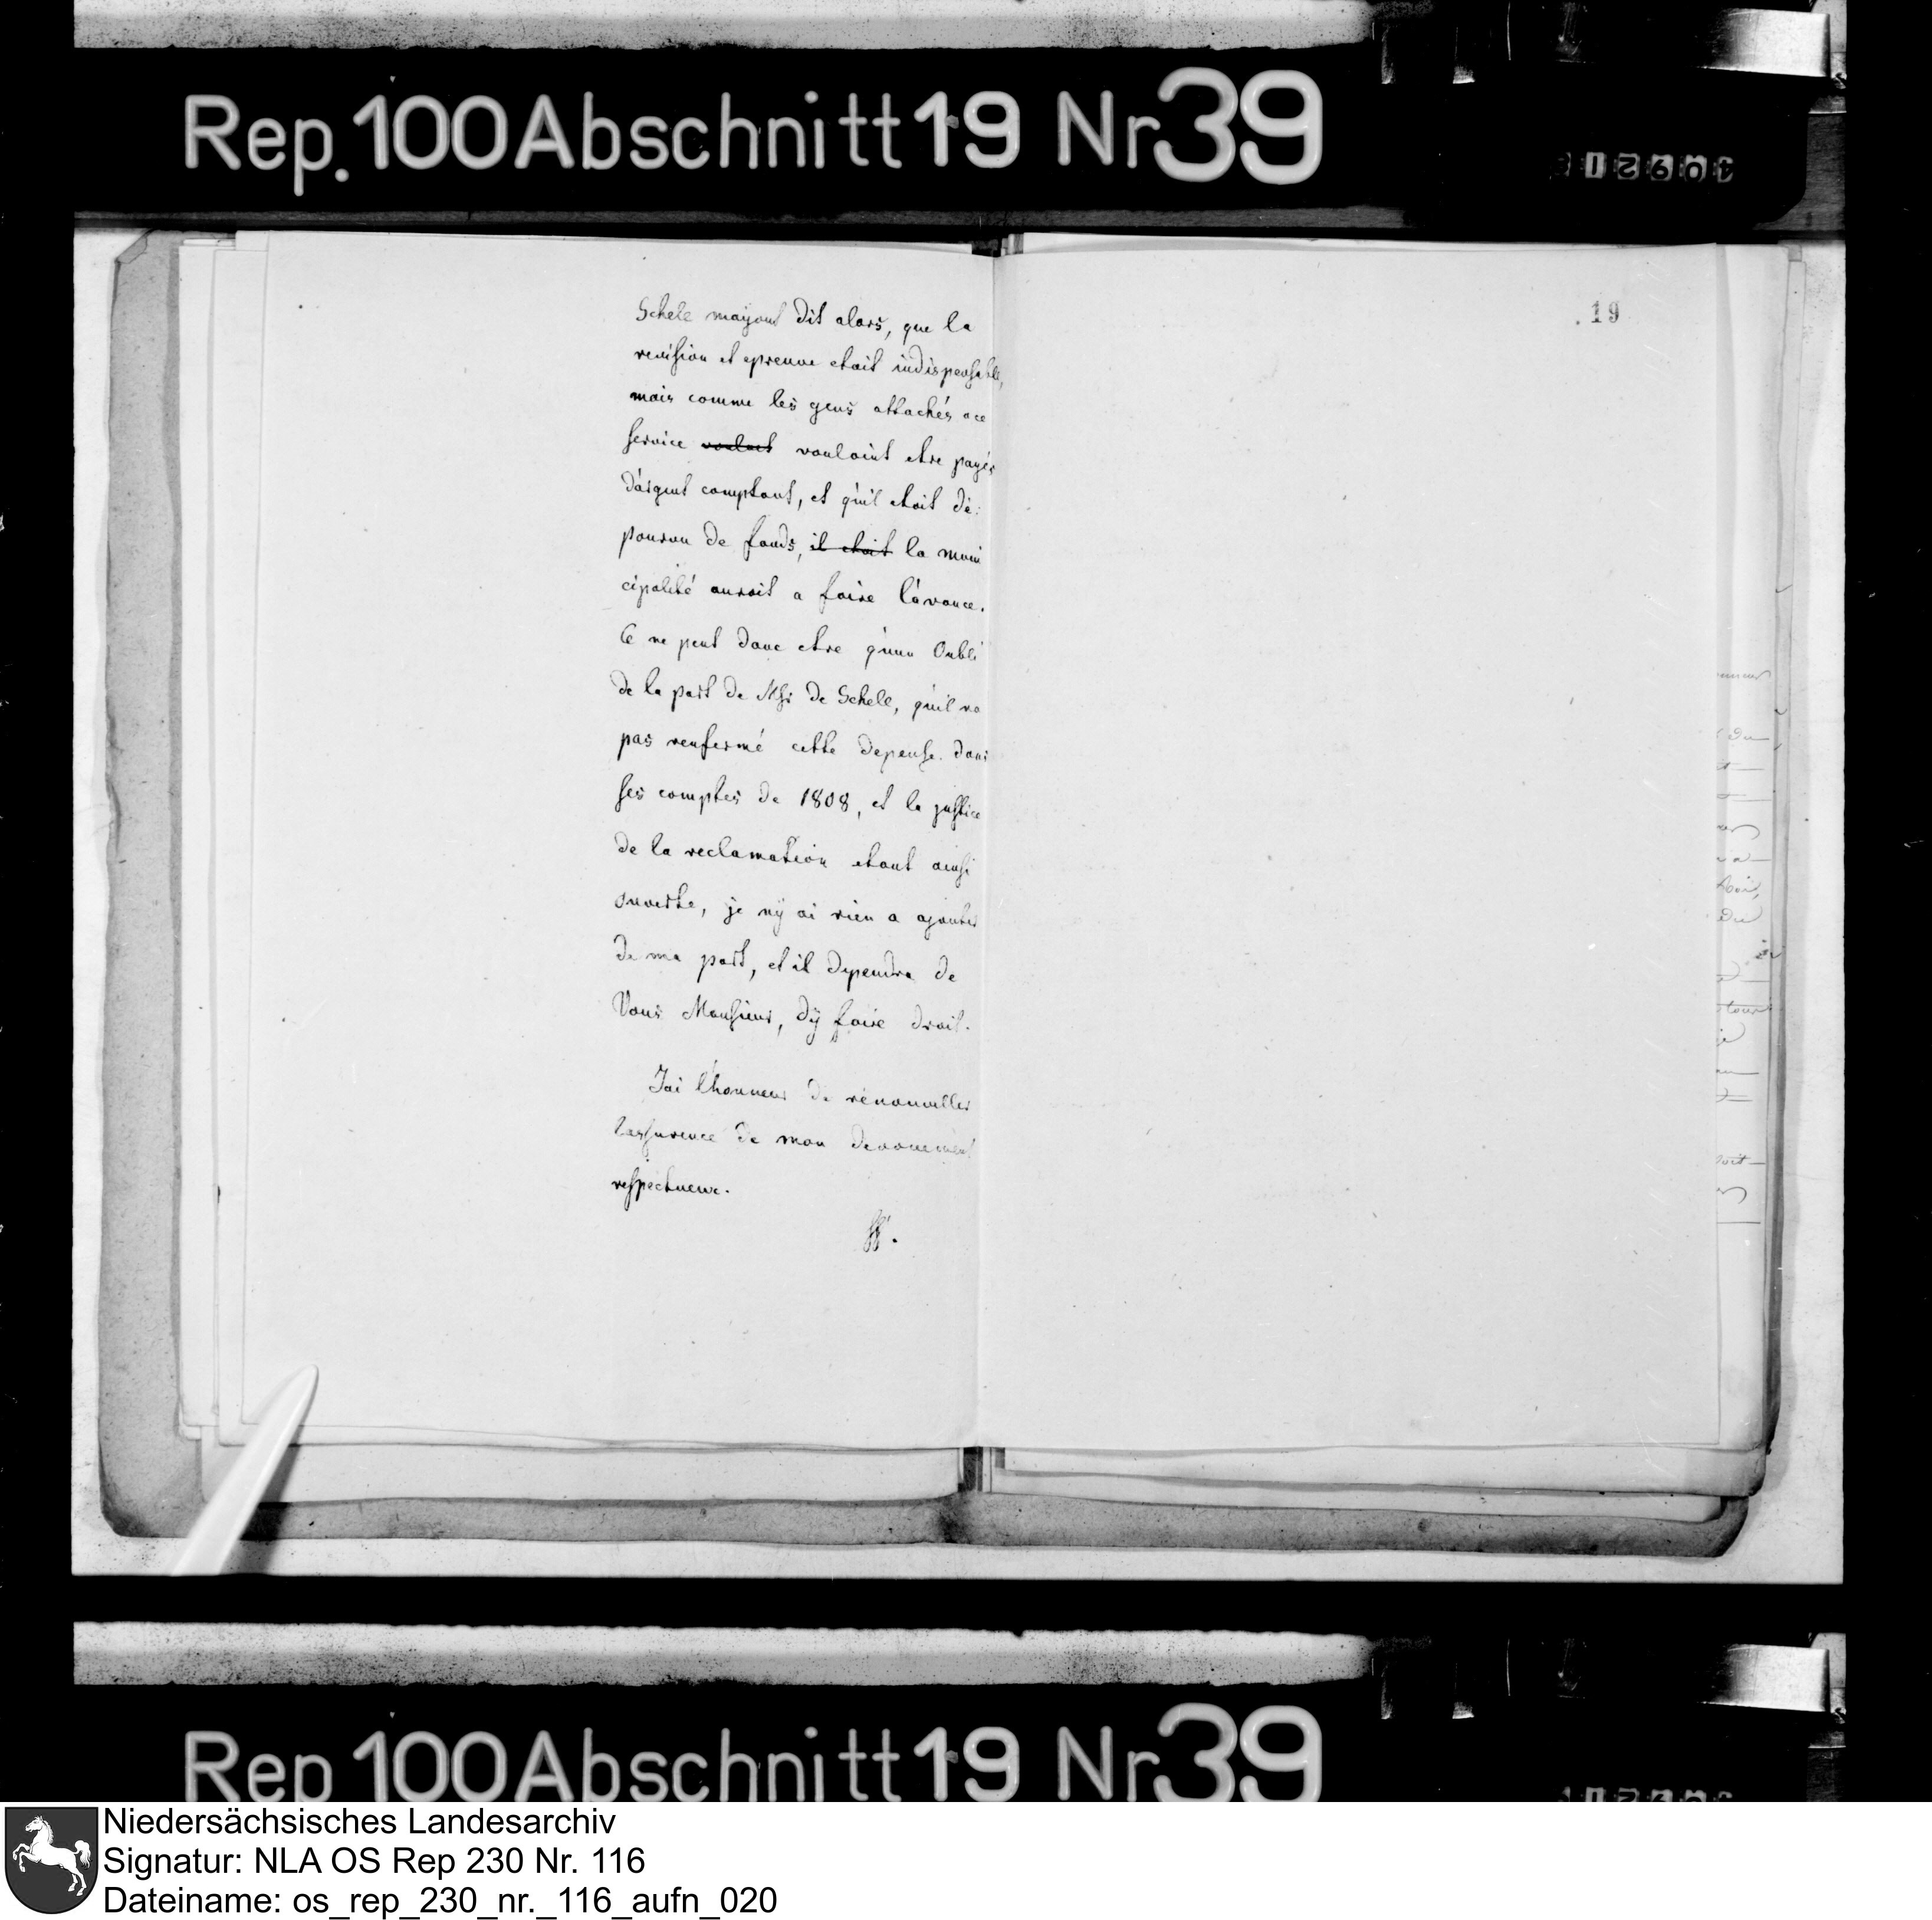 Rep. 100 Abschnitt 19 Nr 39
19
Schele mayant dit alors, que la
revision et epreuve etait indispensable,
mais comme les gens attachés a ce
service voulait vouloint etre payés
d'argent comptant, et qu'il etoit dé:
pourvu de fonds, il etoit la muni
cipalité auroit a faire l'avance.
Ce ne peut donc etre qu'un Oubli
de la part de Msr de Schele, qu'il na
pas renfermé cette depense dans
ses comptes de 1808, et la justice
de la reclamation etant ainsi
ouverte, je ny ai rien a ajouter
de ma part, et il dependra de
Vous Monsieur, d'y faire droit.
Jai l'honneur de rénouveller
l'assurence de mon devouement
respectueux.
Rep 100 Abschnitt 19 Nr 39
Niedersächsisches Landesarchiv
Signatur: NLA OS Rep 230 Nr. 116
Dateiname: os_rep_230_nr._116_aufn_020